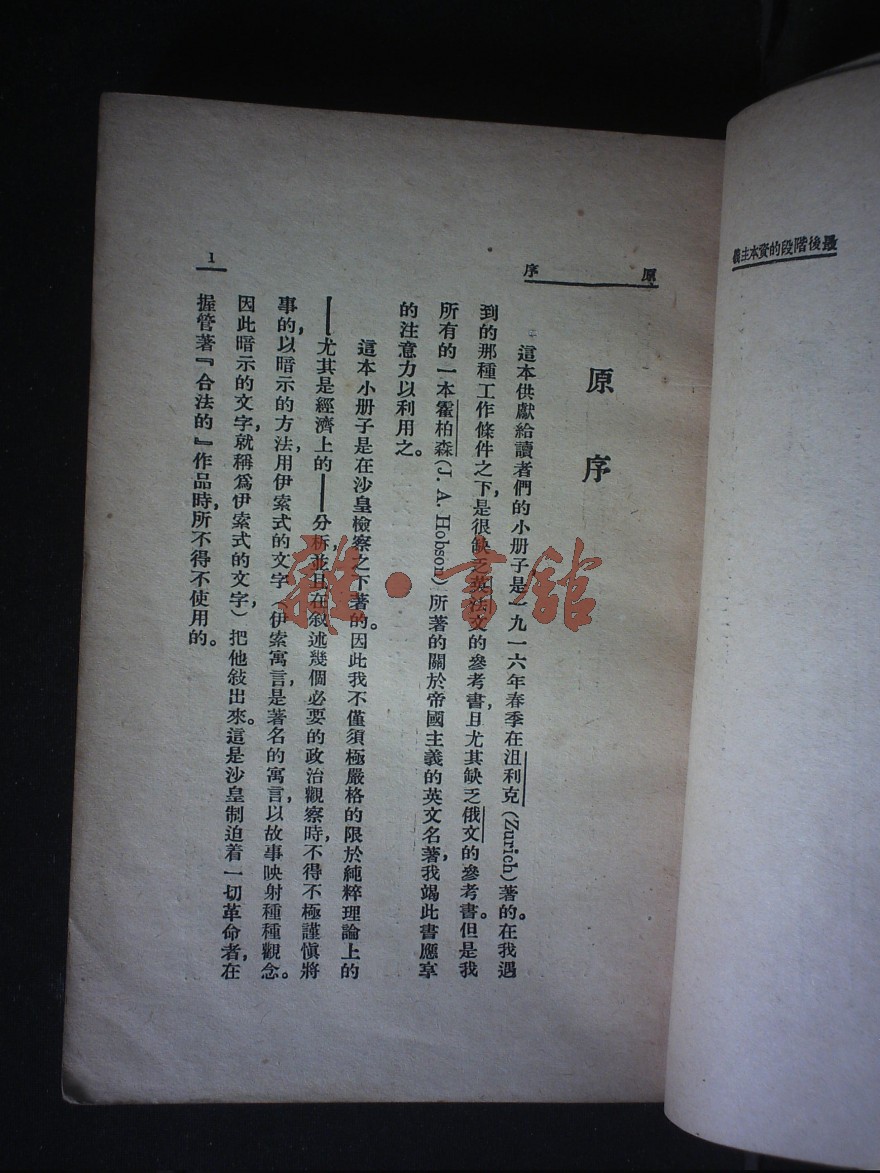 最後階段的資本主義
原序
原序
這本供獻給讀者們的小册子是一九一六年春季在沮利克(Zurich)著的。在我遇
到的那種工作條件之下,是很缺乏英法文的參考書,且尤其缺乏俄文的參考書。但是我
所有的一本霍柏森(J. A. Hobson)所著的關於帝國主義的英文名著,我竭此書應享
的注意力以利用之。
這本小册子是在沙皇檢察之下著的。因此我不僅須極嚴格的限於純粹理論上的
——尤其是經濟上的——分析,並且在叙述幾個必要的政治觀察時,不得不極謹慎將
事的,以暗示的方法,用伊索式的文字(伊索寓言是著名的寓言,以故事映射種種觀念。
因此暗示的文字,就稱爲伊索式的文字)把他敍出來。這是沙皇制迫着一切革命者,在
握管著『合法的』作品時,所不得不使用的。
1
雜·書館